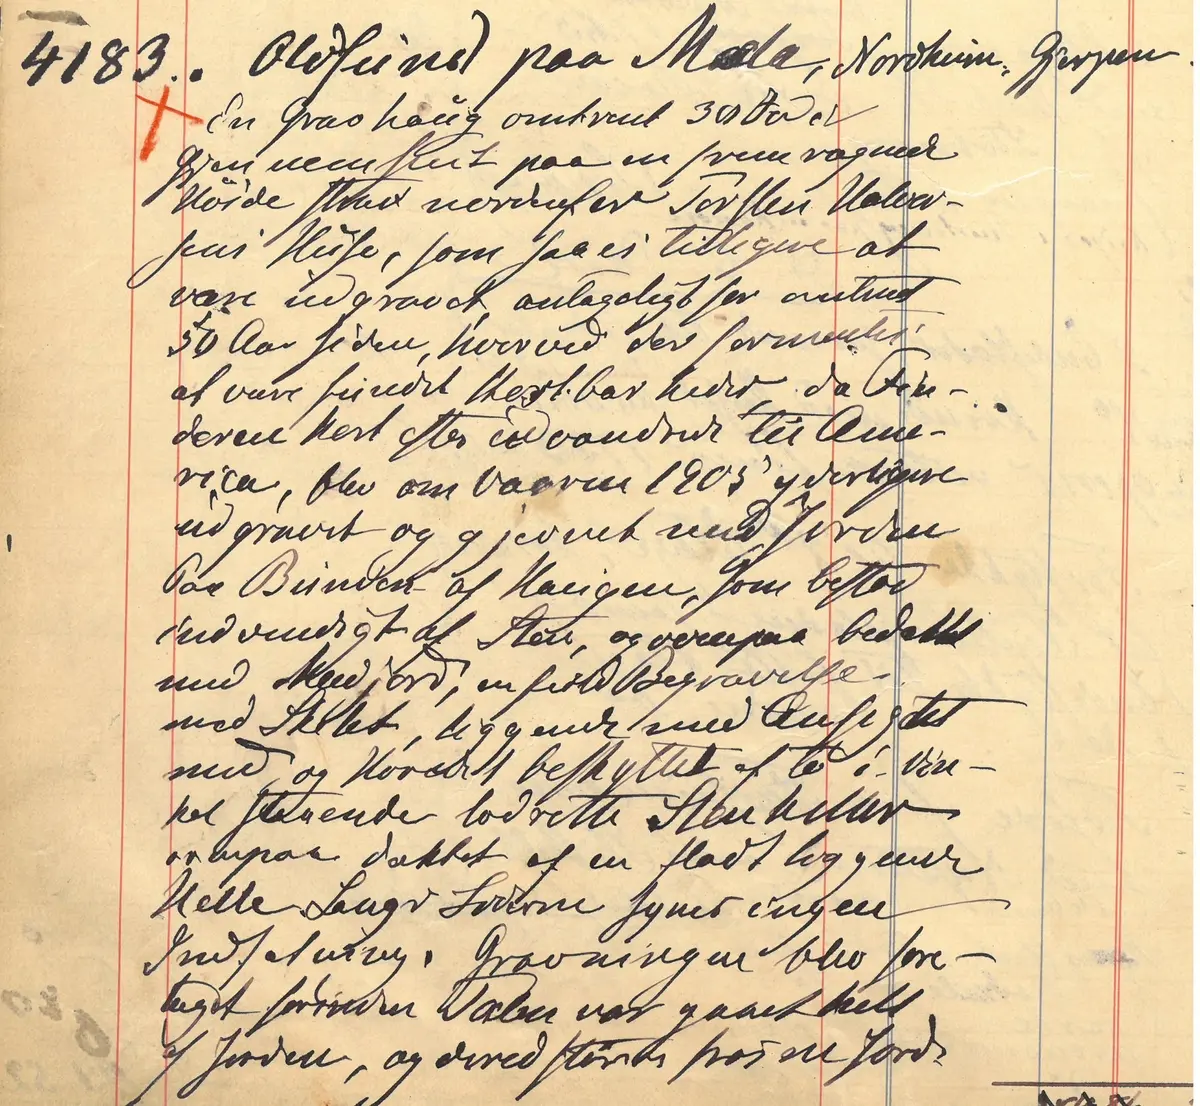 4183. Oldfund paa Mæla, Nordheim, Gjerpen
En Gravhaug omtrent 30 Fod i
Gjennemsnit paa en fremragende
Høide strax nordenfor Torsten Halvor-
sens Huse, som saaes tidligere at
være udgravet, antageligt for omtrent
50 Aar siden, hvorved der formentes
at være fundet Kostbarheder, da Fin-
deren kort efter udvandrede til Ame-
rica, blev om Vaaren 1905 yderligere
udgravet og gjevnet med Jorden
Paa Bunden af Haugen, som bestod
indvendigt af Sten, og ovenpaa bedækket
med Madjord, en fuld Begravelse
med Skelet, liggende med Ansigtet
ned, og Hovedet beskyttet af to i Vin-
kel staaende lodrette Stenheller
ovenpaa dækket af en fladt liggende
Helle. Langs Siderne synes ingen
Indfatning. Gravningen blev fore-
taget førinden Tælen var gaaet helt
af Jorden, og derved større frosne Jord-